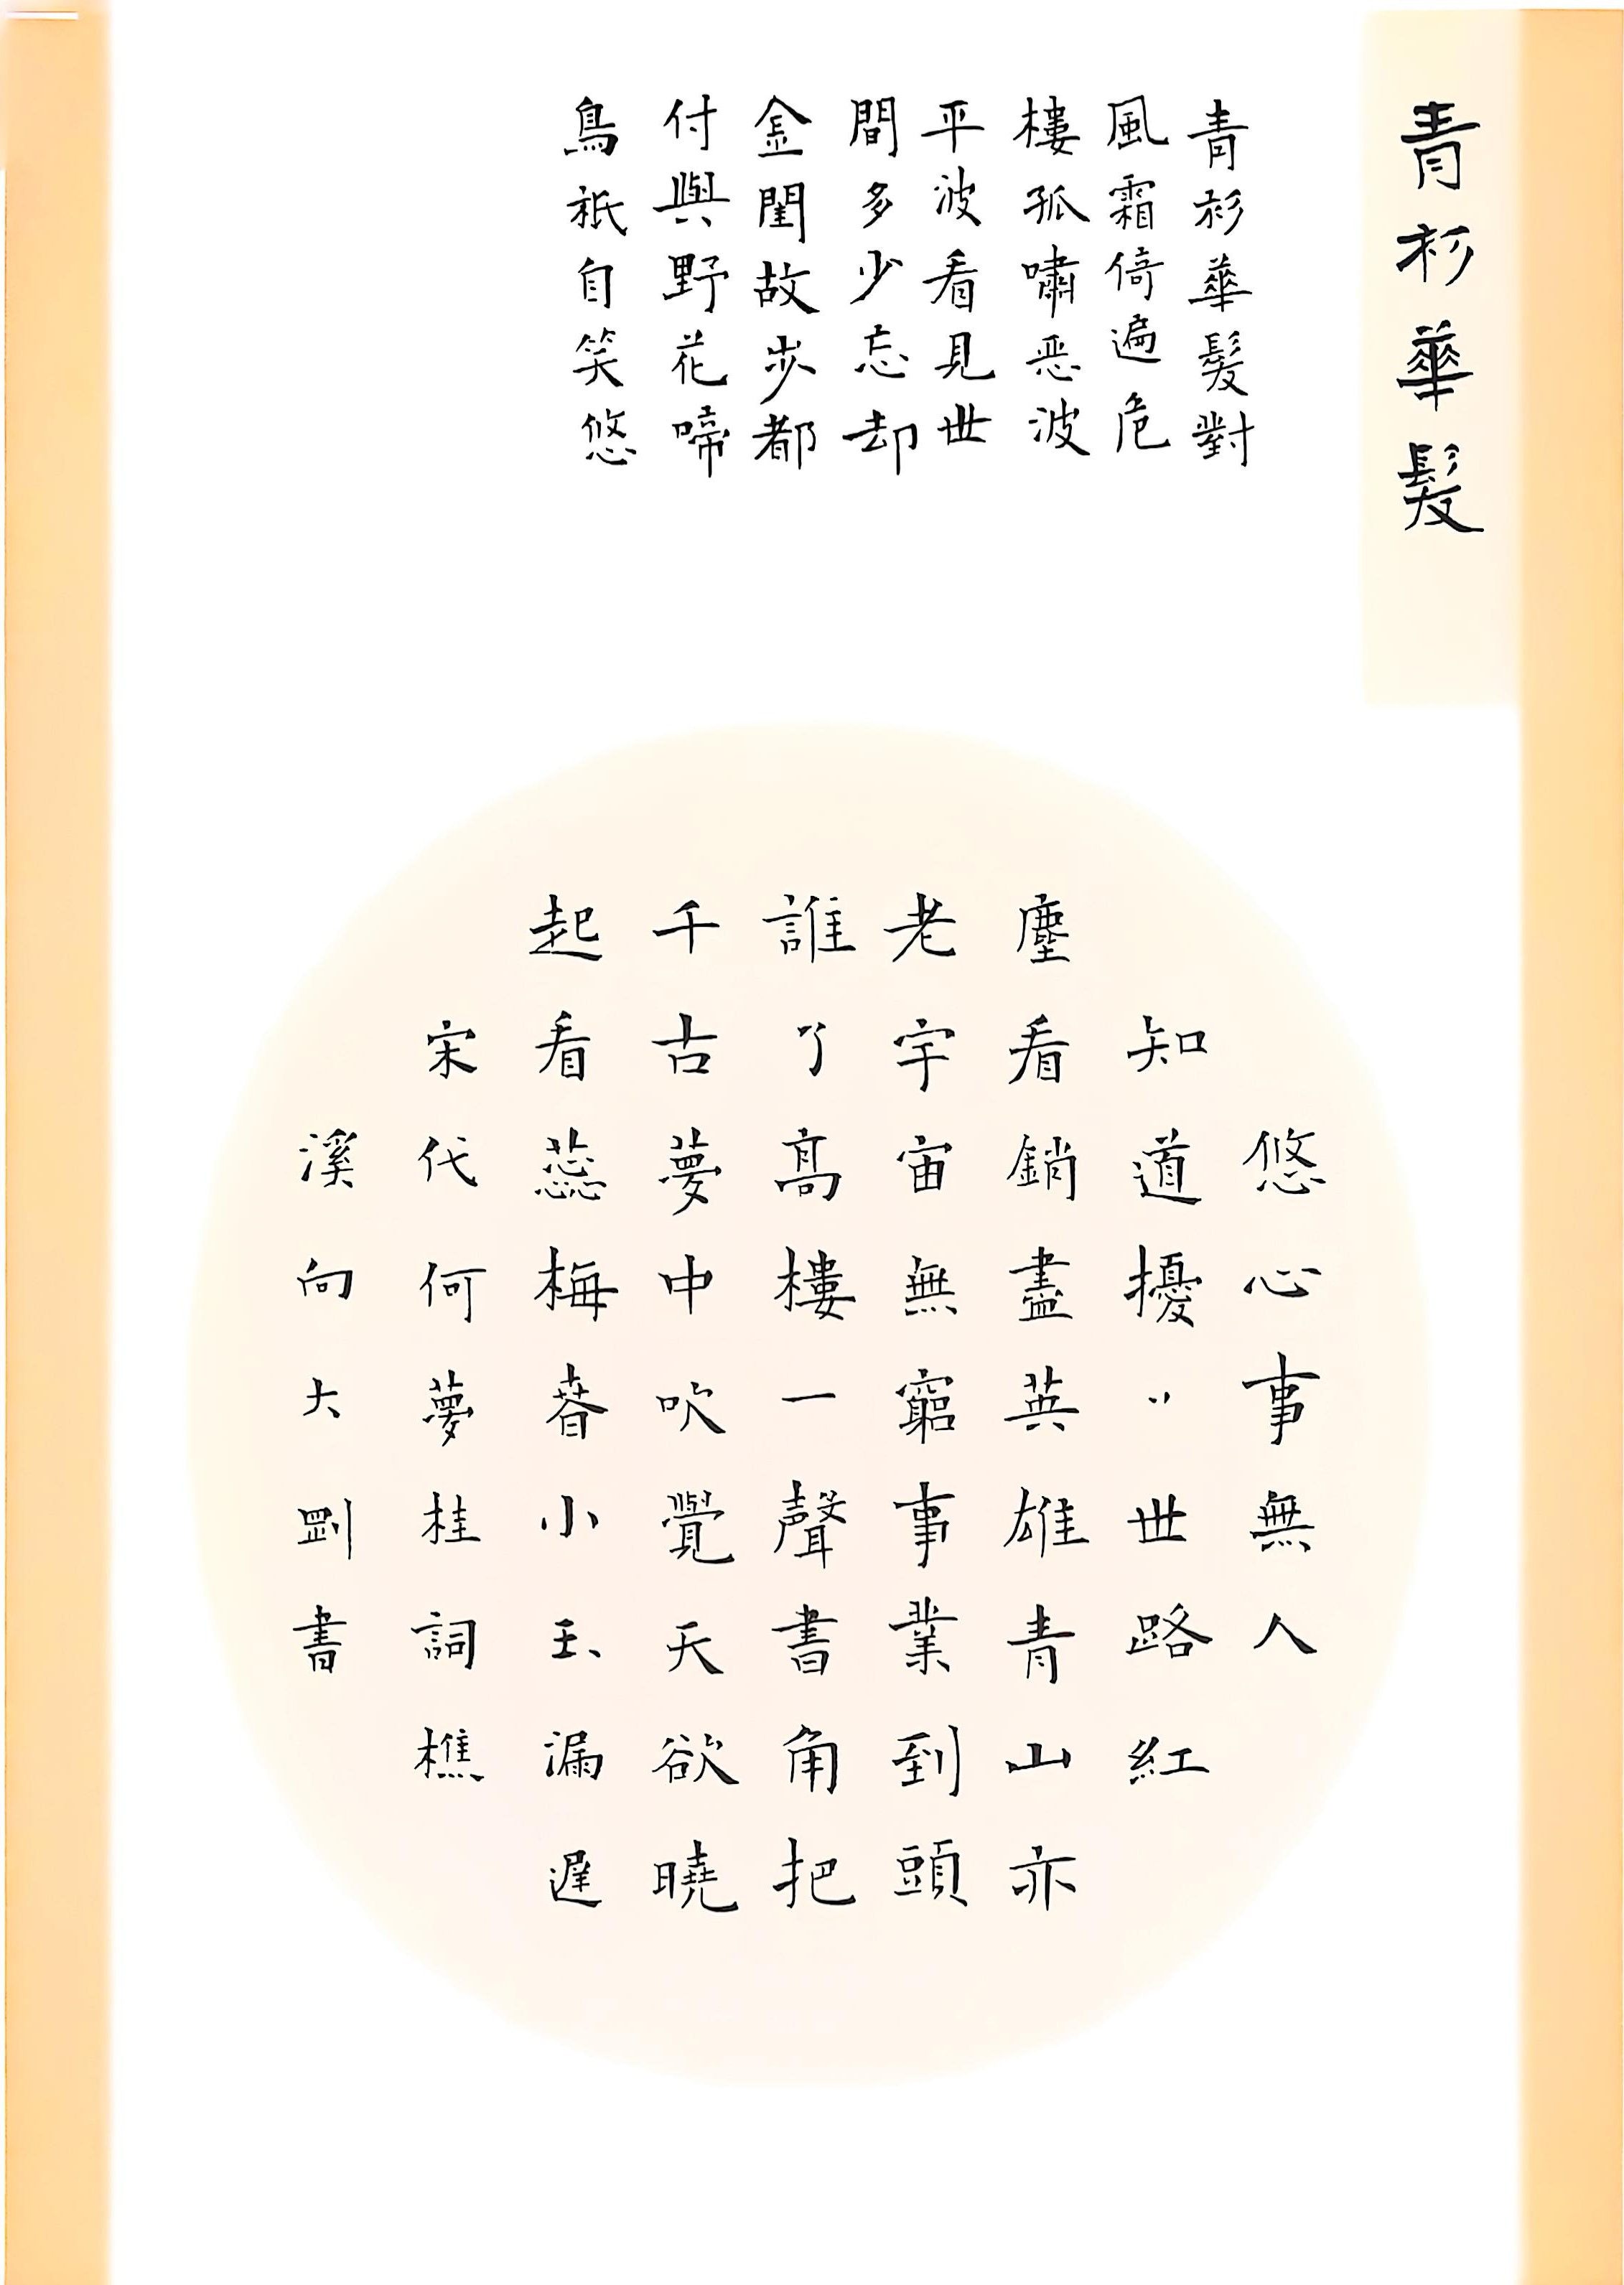 青衫華髮
青衫華髮對
風霜倚遍危
樓孤嘯恶波
平波看見世
間多少忘却
金閨故步都
付與野花啼
鳥祇自笑悠
悠心事無人
知道擾〃世路紅
塵看看銷盡英雄青山亦
老宇宙無窮事業到頭
誰了高樓一聲畫角把
千古夢中吹覺天欲曉
起看蕊梅春小玉漏遲
宋代何夢桂詞樵
溪向大剛書